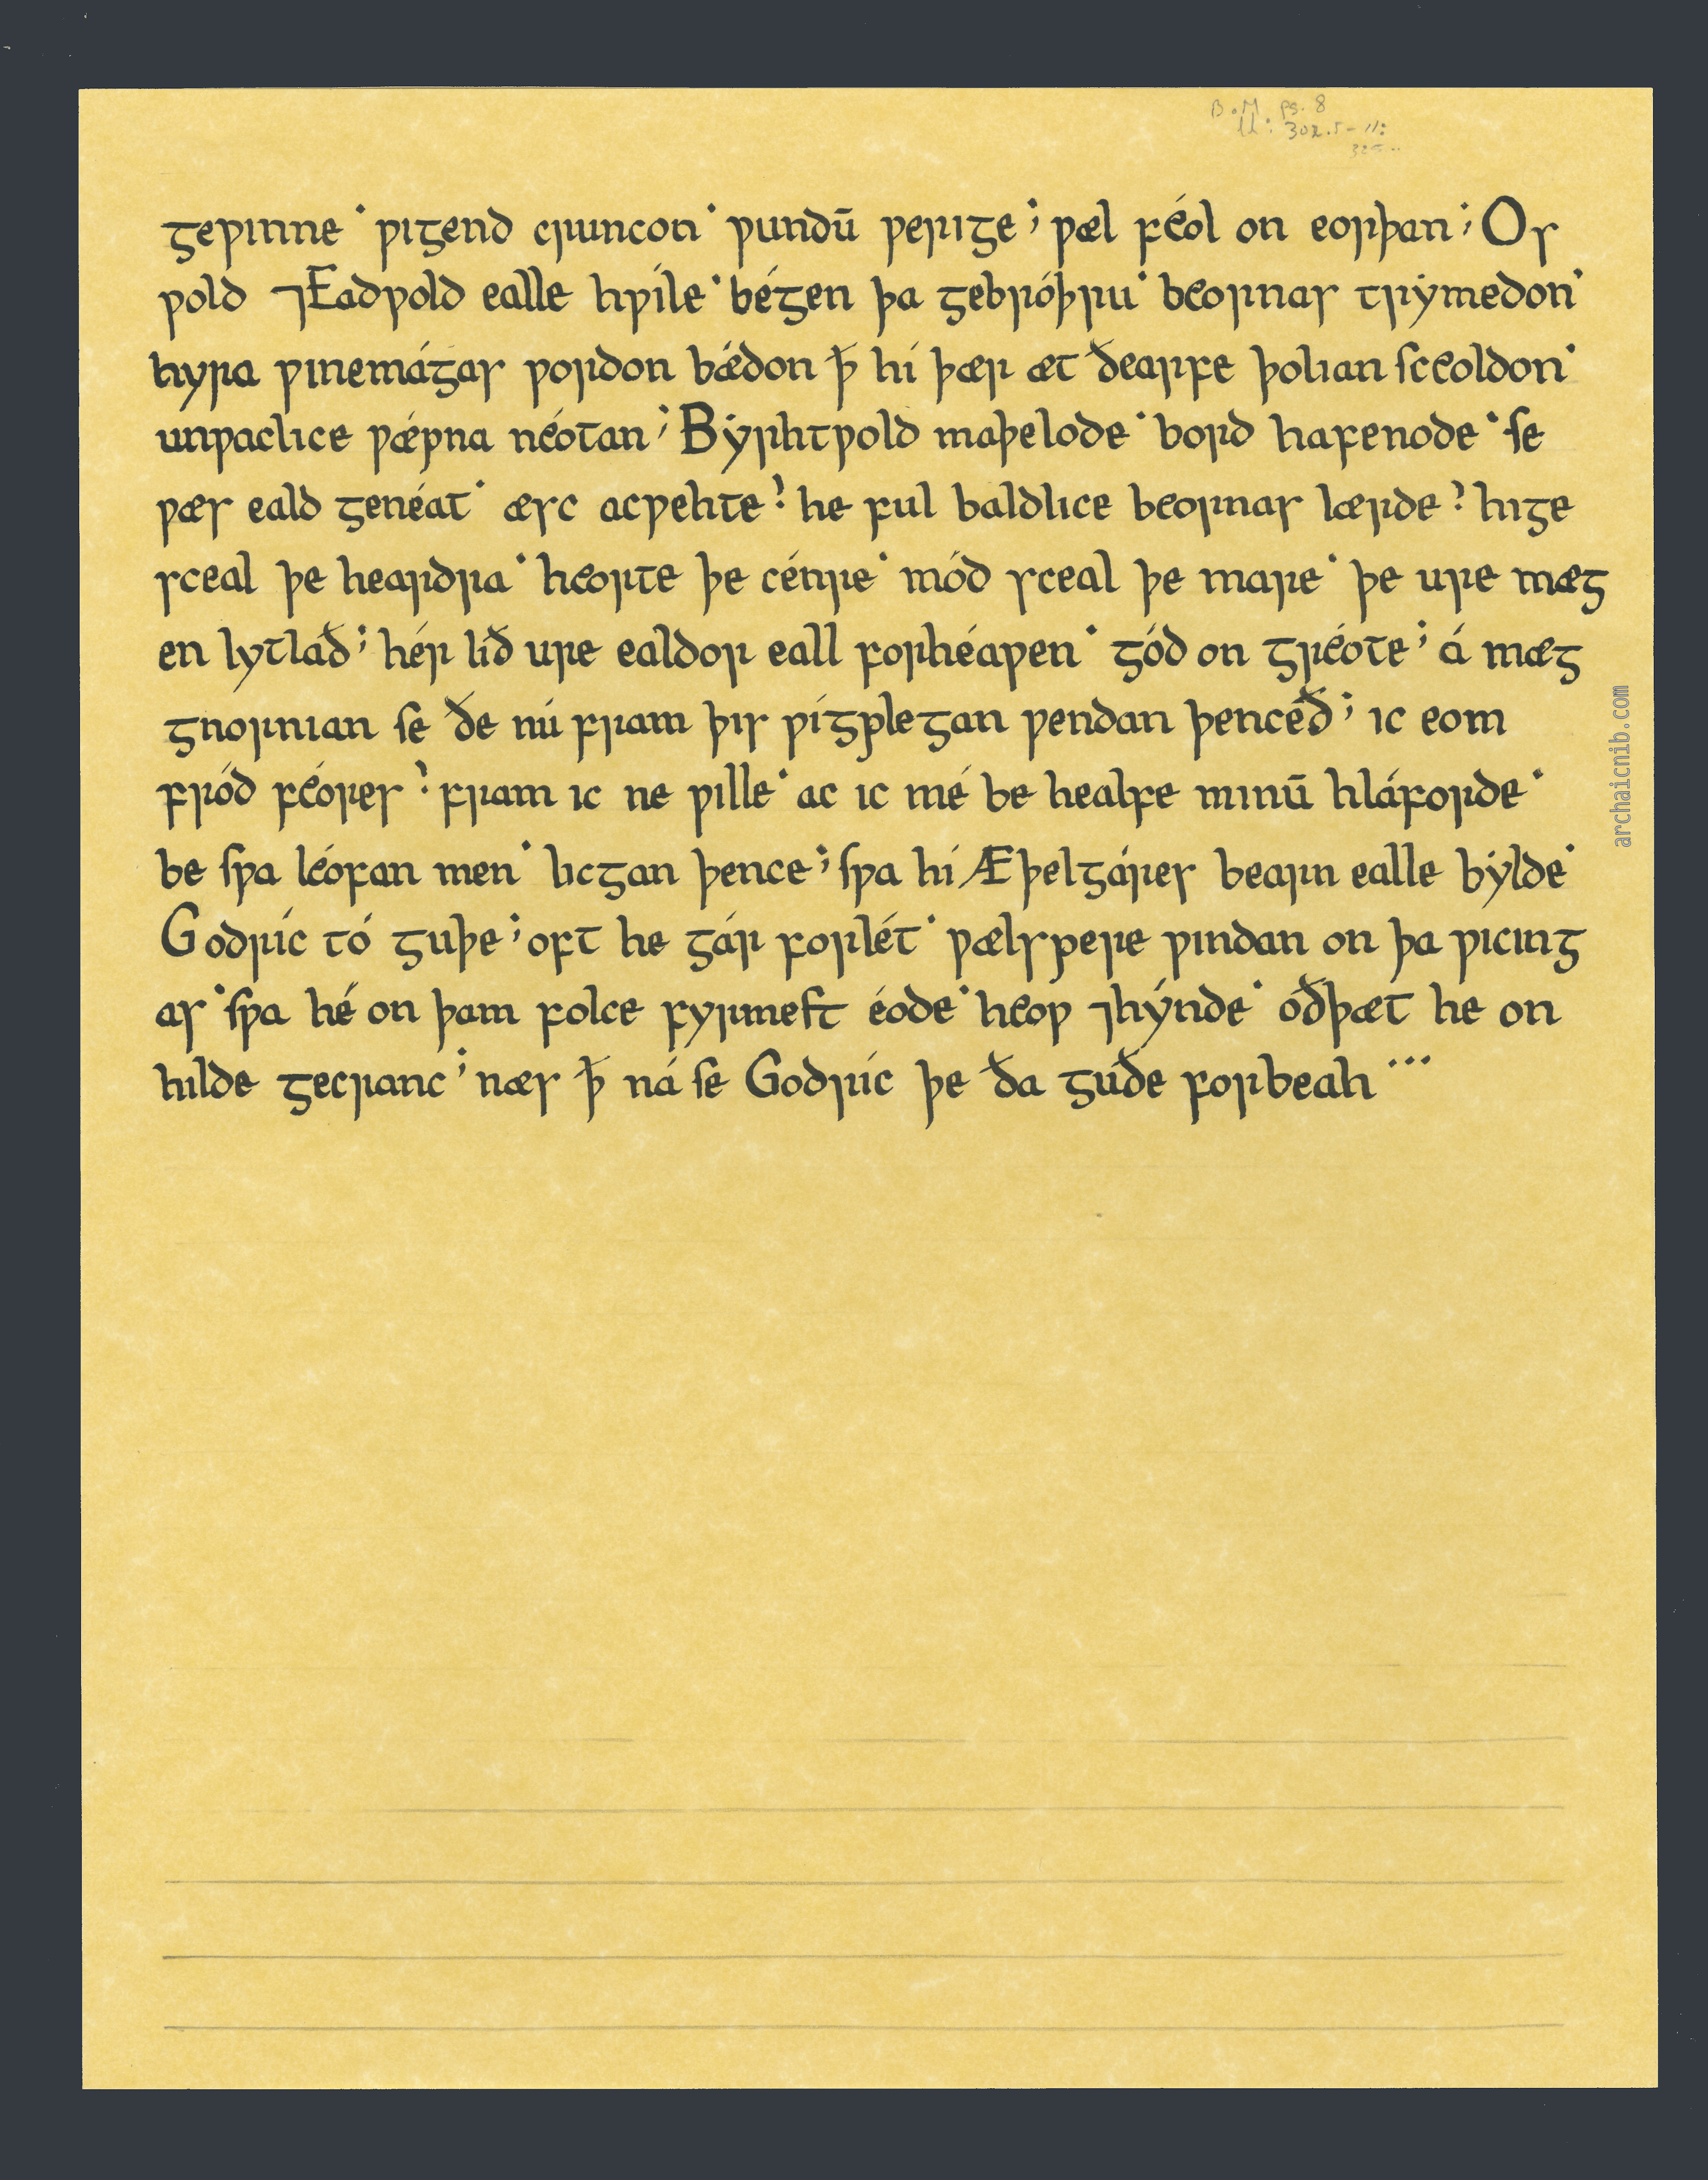 B.M. pg. 8
ll: 302.5-11:
325..
geƿinne˙ ƿigend cruncon˙ ƿundū ƿerige; ƿæl féol on eorþan; Os
ƿold ⁊Eadƿold ealle hƿíle˙ bégen þa gebróþru˙ beornas trẏmedon˙
hyra ƿinemágas ƿordon bǽdon ꝥ hí þær æt ðearfe þolian ſceoldon˙
unƿaclice ƿǽpna néotan; Bẏrhtƿold maþelode˙ bord hafenode˙ ſe
ƿæs eald genéat˙ æsc acƿehte? he ful baldlice beornas lærde? hige
sceal þe heardra˙ heorte þe cénre˙ mód sceal þe mare˙ þe ure mæg
en lytlað; hér lið ure ealdor eall forhéaƿen˙ gód on gréote; á mæg
gnornian ſe ðe nú fram þis ƿígplegan ƿendan þenceð; ic eom
fród féores? fram ic ne ƿille˙ ac ic mé be healfe minū hláforde˙
be ſƿa léofan men˙ licgan þence; ſƿa hí Æþelgáres bearn ealle bẏlde˙
Godríc tó guþe; oft he gár forlét˙ ƿælspere ƿindan on þa ƿicing
as˙ ſƿa hé on þam folce fyrmeſt éode˙ heoƿ ⁊hýnde˙ oðþæt he on
hilde gecranc; næs ꝥ ná ſe Godríc þe ða guðe forbeah...
archaicnib.com